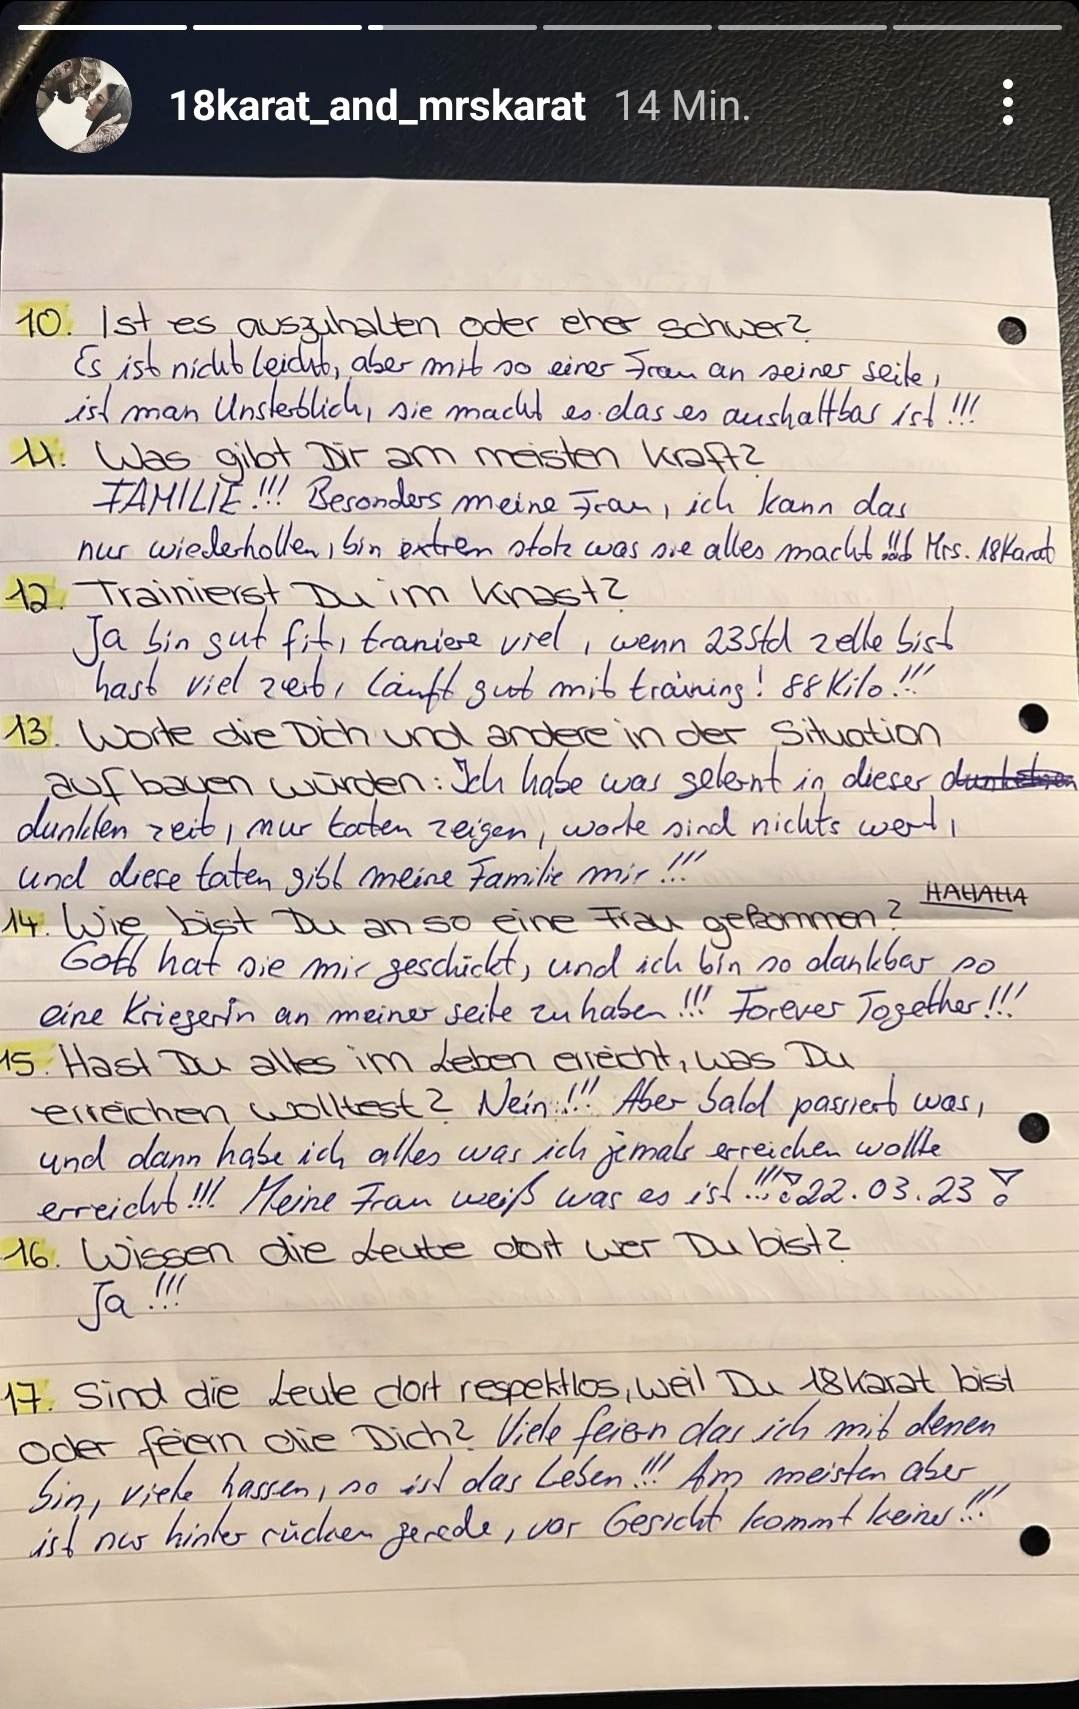 18karat_and_mrskarat 14 Min.
10. Ist es auszuhalten oder eher schwer?
Es ist nicht leicht, aber mit so einer Frau an seiner seite,
ist man Unsterblich, sie macht es das es aushaltbar ist!!!
11. Was gibt Dir am meisten Kraft?
FAMILIE!!! Besonders meine Frau, ich kann das
nur wiederhollen, bin extrem stolz was sie alles macht!!! Mrs. 18Karat
12. Trainierst Du im Knast?
Ja bin gut fit, traniere viel, wenn 23Std zelle bist
hast viel zeit, läuft gut mit training! 88Kilo!!!
13. Worte die Dich und andere in der Situation
aufbauen würden: Ich habe was gelernt in dieser
dunklen zeit, nur taten zeigen, worte sind nichts wert,
und diese taten gibt meine Familie mir!!!
HAHAHA
14. Wie bist Du an so eine Frau gekommen?
Gott hat sie mir geschickt, und ich bin so dankbar so
eine Kriegerin an meiner seite zu haben!!! Forever Together!!!
15. Hast Du alles im Leben erreicht, was Du
erreichen wolltest? Nein!!! Aber bald passiert was,
und dann habe ich alles was ich jemals erreichen wollte
erreicht!!! Meine Frau weiß was es ist!!! 22.03.23
16. Wissen die Leute dort wer Du bist?
Ja!!!
17. Sind die Leute dort respektlos, weil Du 18Karat bist
oder feiern die Dich? Viele feiern das ich mit denen
bin, viele hassen, so ist das Leben!!! Am meisten aber
ist nur hinter rücken gerede, vor Gesicht kommt keiner!!!